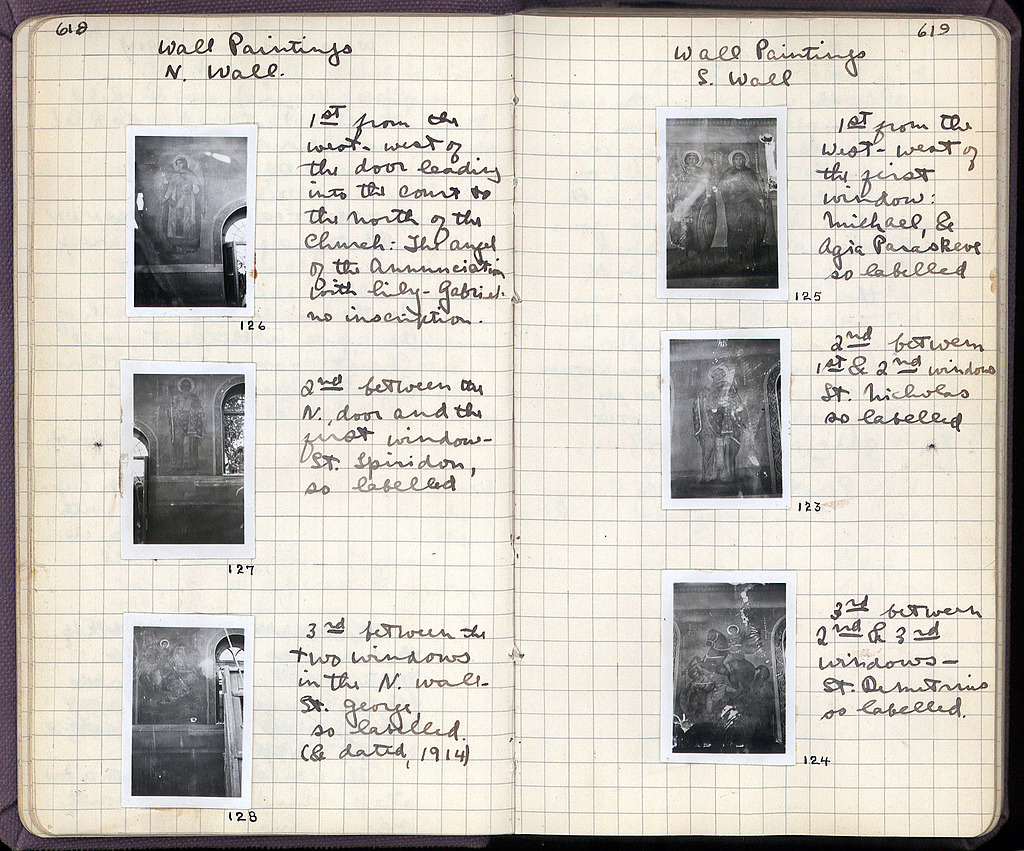 618
Wall Paintings
N. Wall.
1st from the
west - west of
the door leading
into the court to
the north of the
Church: The angel
of the Annunciation
with lily - Gabriel.
no inscription.
126
2nd between the
N. door and the
first window -
St. Spiridon,
so labelled
127
3rd between the
two windows
in the N. wall -
St. George,
so labelled.
(& dated, 1914)
128
619
Wall Paintings
S. Wall
1st from the
West - west of
the first
window:
Michael, &
Agia Paraskeve
so labelled
125
2nd between
1st & 2nd windows
St. Nicholas
so labelled
123
3rd between
2nd & 3rd
windows -
St. Demetrius
so labelled.
124